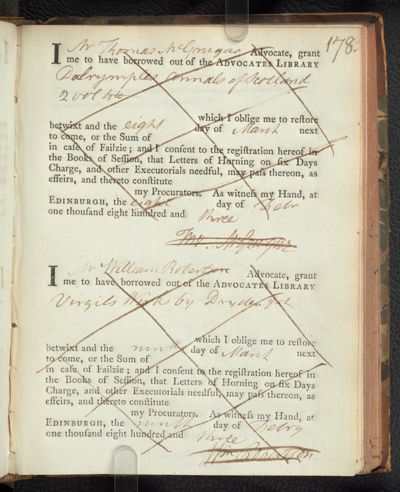 178.
I Mr Thomas McGrugar Advocate, grant
me to have borrowed out of the ADVOCATES LIBRARY
Dalrymples Annals of Scotland
2 vol 4to
which I oblige me to restore
betwixt and the eight day of March next
to come, or the Sum of
in case of Failzie; and I consent to the registration hereof in
the Books of Session, that Letters of Horning on six Days
Charge, and other Executorials needful, may pass thereon, as
effeirs, and thereto constitute
my Procurators. As witness my Hand, at
EDINBURGH, the eight day of Febr
one thousand eight hundred and three
I Mr William Robertson Advocate, grant
me to have borrowed out of the ADVOCATES LIBRARY
Virgils Works by Dryden
which I oblige me to restore
betwixt and the ninth day of March next
to come, or the Sum of
in case of Failzie; and I consent to the registration hereof in
the Books of Session, that Letters of Horning on six Days
Charge, and other Executorials needful, may pass thereon, as
effeirs, and thereto constitute
my Procurators. As witness my Hand, at
EDINBURGH, the ninth day of Febry
one thousand eight hundred and three
Wm Robertson